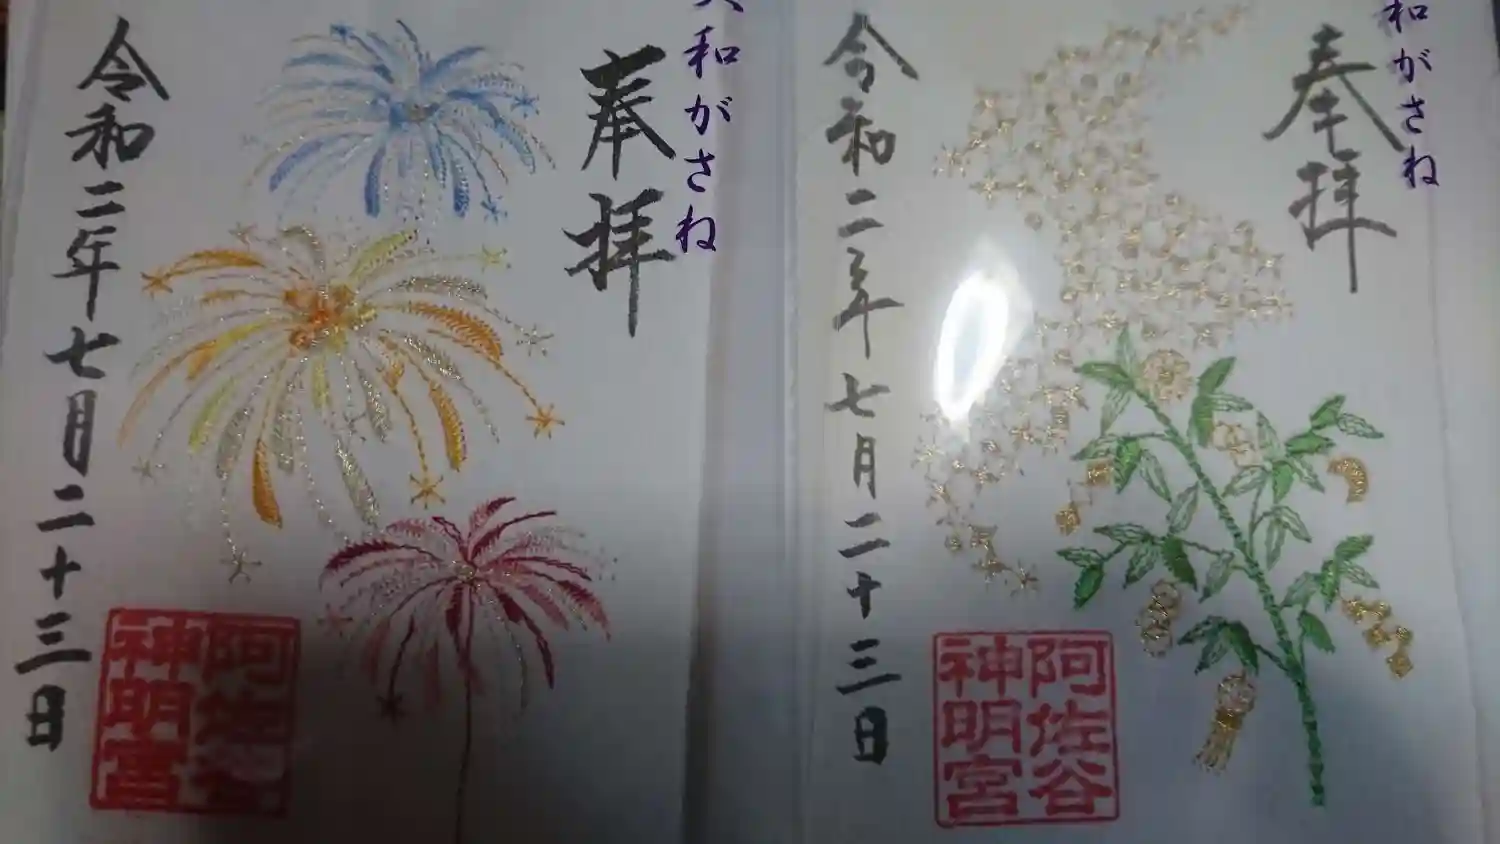 和がさね
奉拝
令和二年七月二十三日
阿佐谷
神明宮
和がさね
奉拝
令和二年七月二十三日
阿佐谷
神明宮